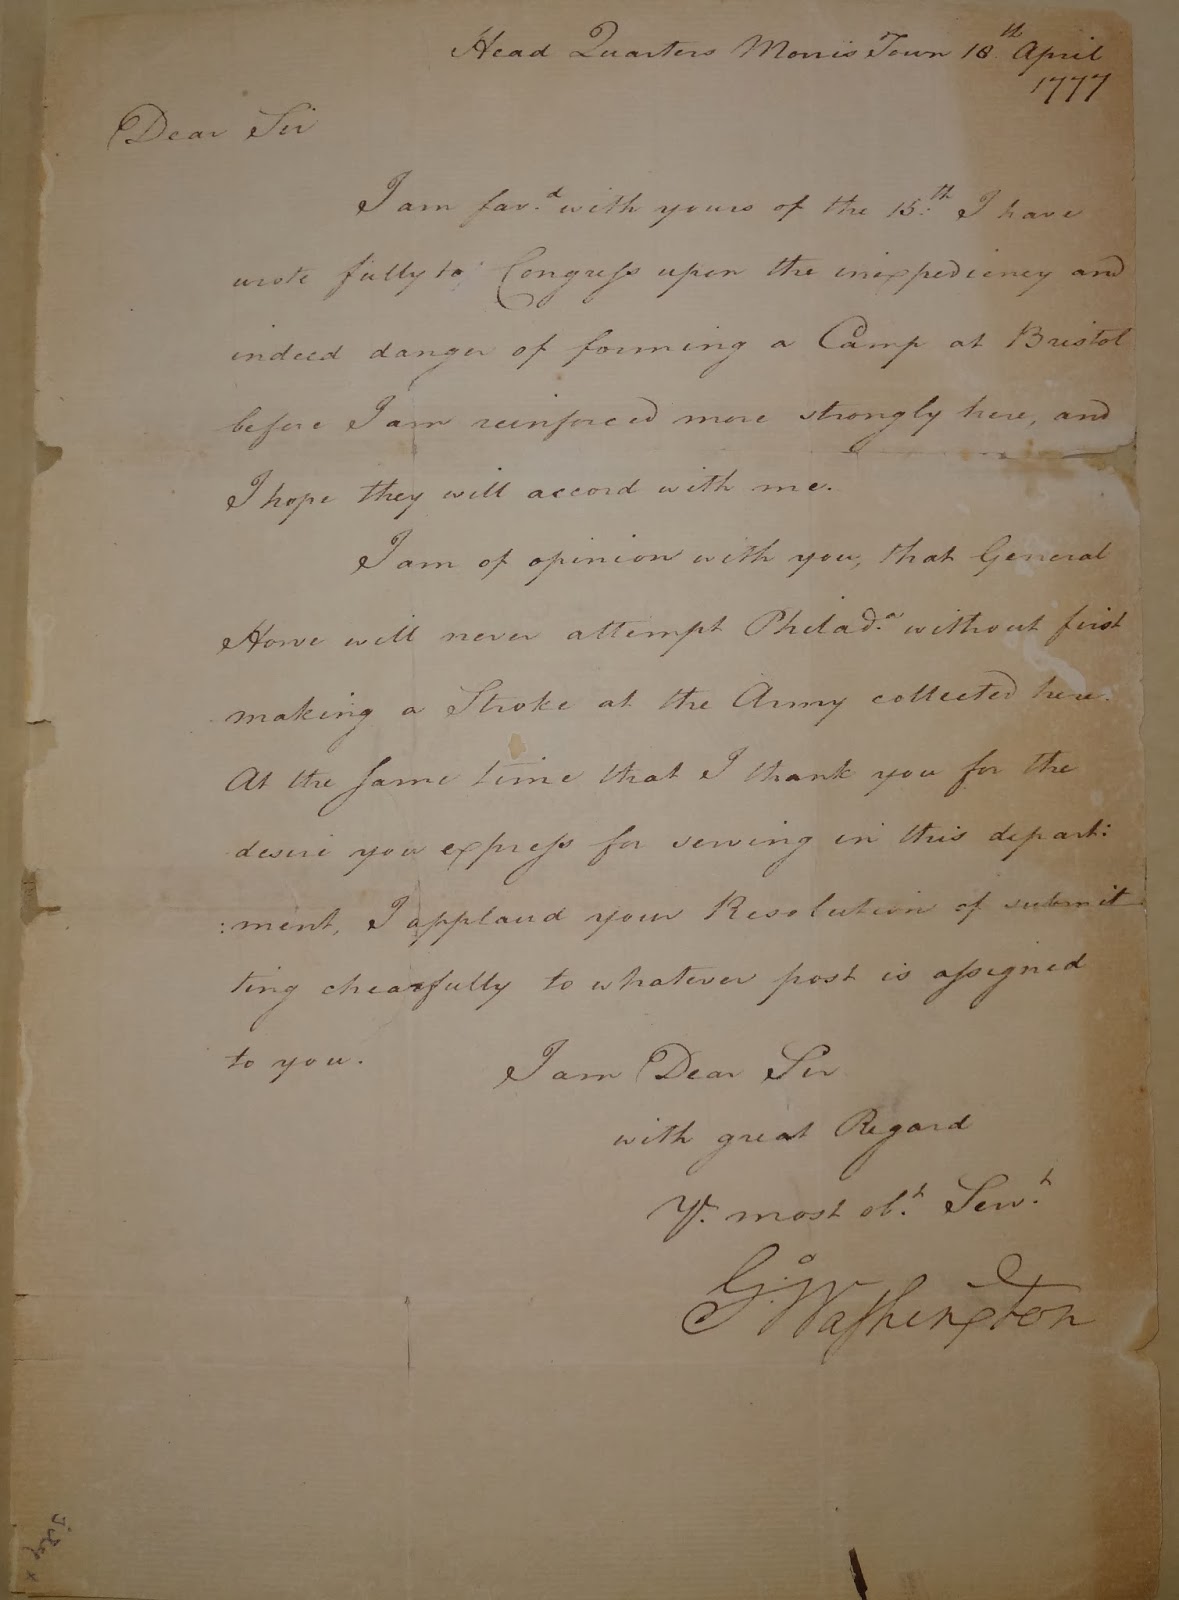 Head Quarters Morris Town 18th. April
1777
Dear Sir
I am fav.d with yours of the 15.th I have
wrote fully to Congress upon the inexpediency and
indeed danger of forming a Camp at Bristol
before I am reinforced more strongly here, and
I hope they will accord with me.
I am of opinion with you, that General
Howe will never attempt Philad.a without first
making a Stroke at the Army collected here.
At the same time that I thank you for the
desire you express for serving in this depart:
:ment, I applaud your Resolution of submit
ting chearfully to whatever post is assigned
to you.
I am Dear Sir
with great Regard
Yr. most ob.t Serv.t
Go: Washington